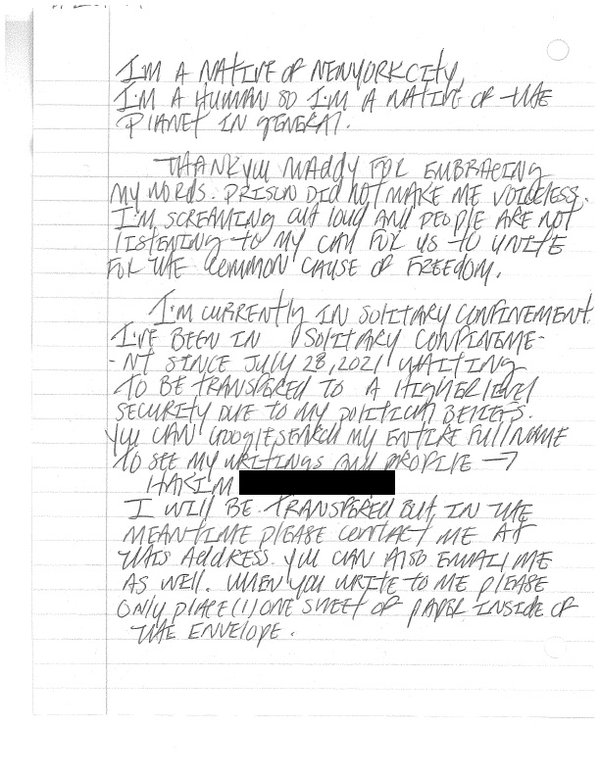 I'M A NATIVE OF NEWYORKCITY,
I'M A HUMAN SO I'M A NATIVE OF THE
PLANET IN GENERAL.
THANKYOU MADDY FOR EMBRACING
MY WORDS. PRISON DID NOT MAKE ME VOICELESS.
I'M SCREAMING OUT LOUD AND PEOPLE ARE NOT
LISTENING TO MY CALL FOR US TO UNITE
FOR THE COMMON CAUSE OF FREEDOM.
I'M CURRENTLY IN SOLITARY CONFINEMENT.
I'VE BEEN IN SOLITARY CONFINEME-
-NT SINCE JULY 28, 2021 WAITING
TO BE TRANSFERED TO A HIGHER LEVEL
SECURITY DUE TO MY POLITICAL BELIEFS.
YOU CAN GOOGLESEARCH MY ENTIRE FULL NAME
TO SEE MY WRITINGS AND PROFILE →
HAKIM
I WILL BE TRANSFERED BUT IN THE
MEANTIME PLEASE CONTACT ME AT
THIS ADDRESS. YOU CAN ALSO EMAIL ME
AS WELL. WHEN YOU WRITE TO ME PLEASE
ONLY PLACE (1) ONE SHEET OF PAPER INSIDE OF
THE ENVELOPE.